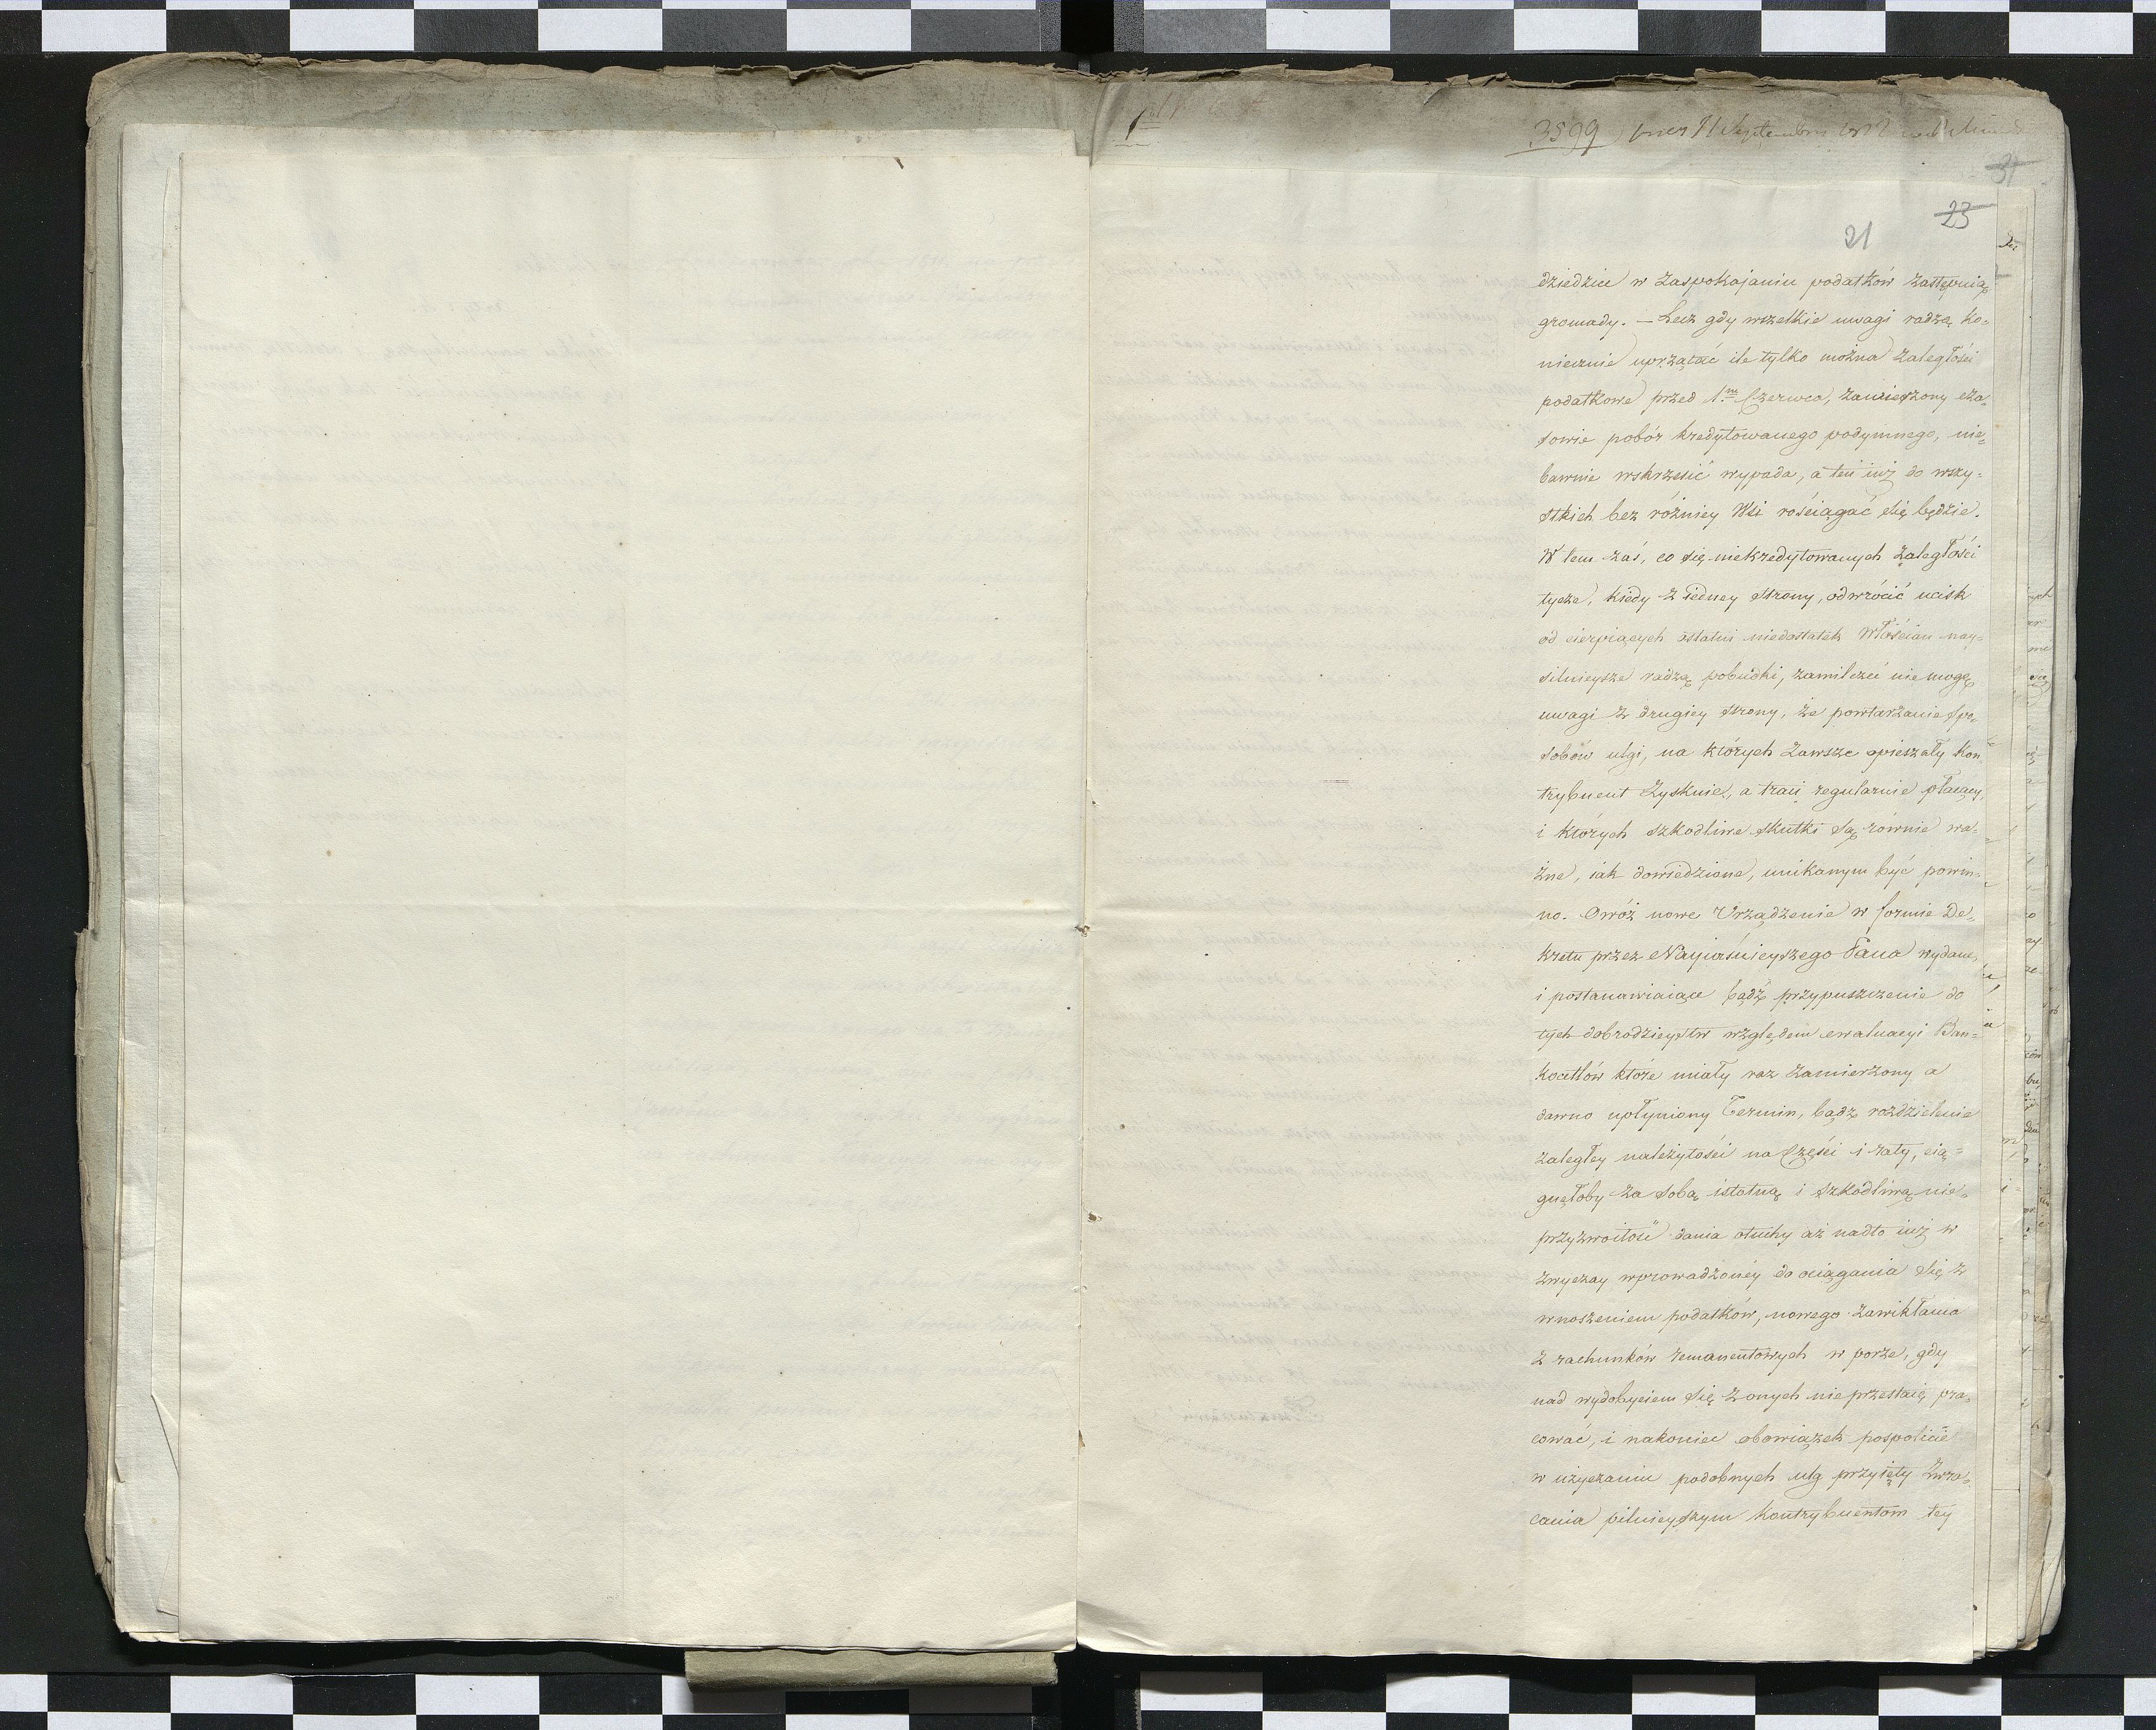 3599
31
23
21
dziedzice w zaspokajaniu podatków zastępuią
gromady. — Lecz gdy wszelkie uwagi radzą ko-
niecznie uprzątać ile tylko można zaległości
podatkowe przed 1.m Czerwca, zawieszony cza-
sowie pobór kredytowanego podymnego, nie-
bawnie wskrzesić wypada, a ten iuż do wszy-
stkich bez różnicy Wsi rościągać się będzie.
W tem zaś, co się niekredytowanych zaległości
tycze, kiedy z iedney strony, odwrócić ucisk
od cierpiących ostatni niedostatek Włościan nay-
silnieysze radzą pobudki, zamilczeć nie mogę
uwagi z drugiey strony, że powtarzanie spo-
sobów ulgi, na których zawsze opieszały kon-
trybuent zyskuie, a traci regularnie płacący,
i których szkodliwe skutki są równie wa-
żne, iak dowiedzione, unikanym być powin-
no. Owóż nowe Urządzenie w formie De-
kretu przez Nayiaśnieyszego Pana wydane,
i postanawiaiące bądź przypuszczenie do
tych dobrodzieystw względem ewaluacyi Ban-
kocetlów które miały raz zamierzony a
dawno upłyniony Termin, bądź rozdzielenie
zaległey należytości na Części i raty, cią-
gnęłoby za sobą istotną i szkodliwą nie-
przyzwoitość dania otuchy aż nadto iuż w
zwyczay wprowadzoney do ociągania się z
wnoszeniem podatków, nowego zawikłania
z rachunków remanentowych w porze, gdy
nad wydobyciem się z onych nie przestaią pra-
cować, i nakoniec obowiązek pospolicie
w użyczaniu podobnych ulg przyięty zwra-
cania pilnieyszym kontrybuentom tey